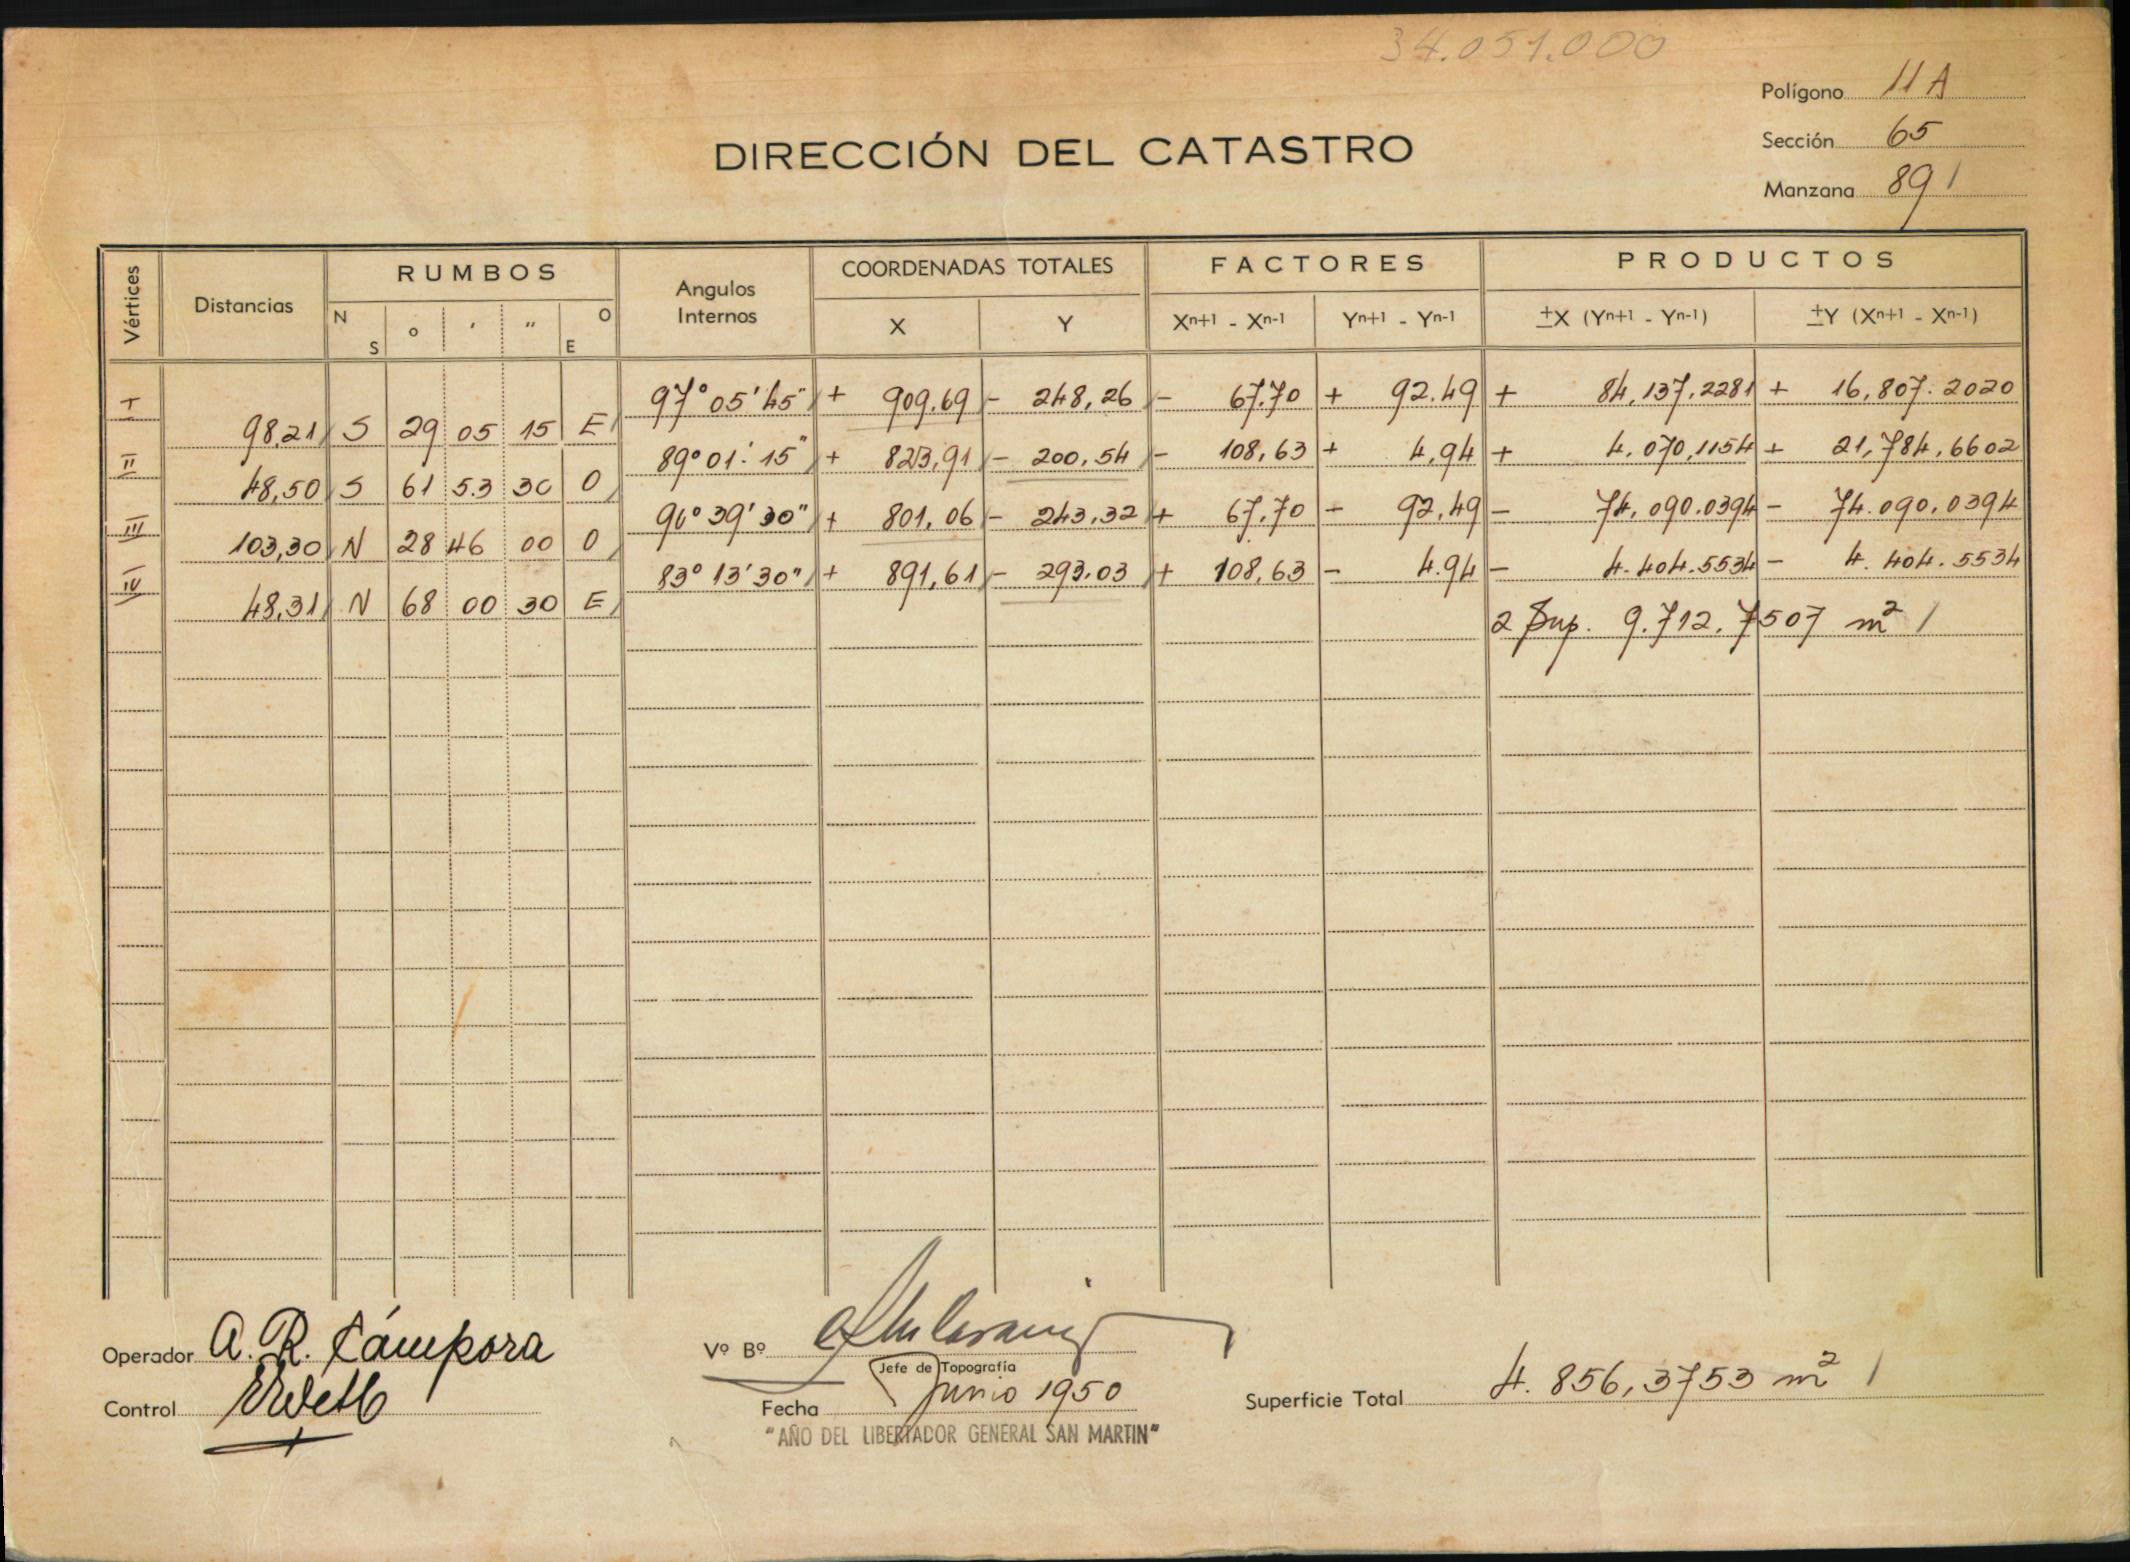 34.051.000
Polígono 11 A
Sección 65
Manzana 891
DIRECCIÓN DEL CATASTRO
Vértices Distancias RUMBOS Angulos Internos COORDENADAS TOTALES FACTORES PRODUCTOS
N S o ' " O E X Y Xn+1 - Xn-1 Yn+1 - Yn-1 ±X (Yn+1 - Yn-1) ±Y (Xn+1 - Xn-1)
I 97° 05' 45" + 909.69 - 248,26 - 67.70 + 92.49 + 84,137.2281 + 16,807.2020
98.21 S 29 05 15 E
II 89° 01' 15" + 823,91 - 200,54 - 108,63 + 4,94 + 4.070,1154 + 21,784,6602
48,50 S 61 53 30 O
III 90° 39' 30" + 801,06 - 243,32 + 67,70 - 92,49 - 74,090.0394 - 74.090,0394
103,30 N 28 46 00 O
IV 83° 13' 30" + 891,61 - 293.03 + 108,63 - 4.94 - 4.404.5534 - 4.404.5534
48,31 N 68 00 30 E
2 Sup. 9.712.7507 m²
Operador A. R. Cámpora
Vº Bº
Jefe de Topografía
Control
Fecha Junio 1950
Superficie Total 4.856,3753 m²
"AÑO DEL LIBERTADOR GENERAL SAN MARTIN"